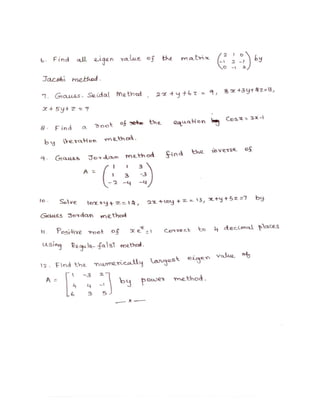 6. Find all eigen value of the matrix (2 1 0 / -1 2 -1 / 0 -1 2) by
Jacobi method.
7. Gauss-Seidal Method, 2x+y+6z=9, 8x+3y+2z=13,
x+5y+z=7
8. Find a root of the equation Cosx=3x-1
by iteration method.
9. Gauss Jordan method find the inverse of
A = (1 1 3 / 1 3 -3 / -2 -4 -4)
10. Solve 10x+y+z=12, 2x+10y+z=13, x+y+5z=7 by
Gauss Jordan method
11. Positive root of xe^x=1 correct to 4 decimal places
using Regula-falsi method.
12. Find the numerically largest eigen value of
A = [1 -3 2 / 4 4 -1 / 6 3 5] by power method.
—x—